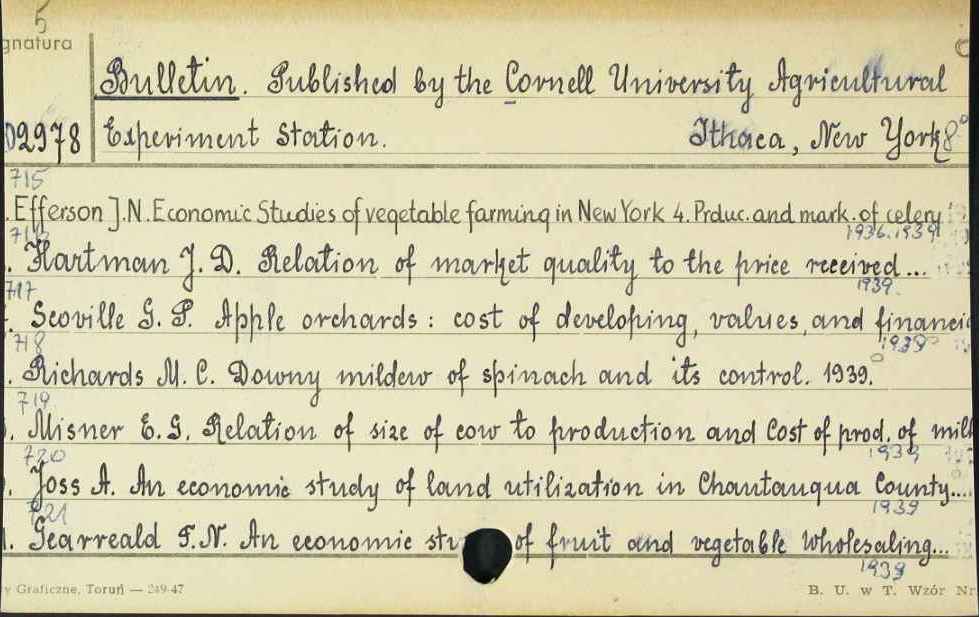 5
gnatura
Bulletin. Published by the Cornell University Agricultural
02978 Experiment Station. Ithaca, New York 8°
715
. Efferson J.N. Economic Studies of vegetable farming in New York 4. Prduc. and mark. of celery
1936.1939
. Hartman J. D. Relation of market quality to the price received...
717 1939.
. Scoville G. P. Apple orchards: cost of developing, values, and financi
718 1939
. Richards M. C. Downy mildew of spinach and its control. 1939.
719
. Misner E. G. Relation of size of cow to production and Cost of prod. of milk
720 1939
. Joss A. An economic study of land utilization in Chautauqua County...
721 1939
. Gearreald T. N. An economic stu of fruit and vegetable wholesaling...
1939
y Graficzne, Toruń — 249-47 B. U. w T. Wzór N